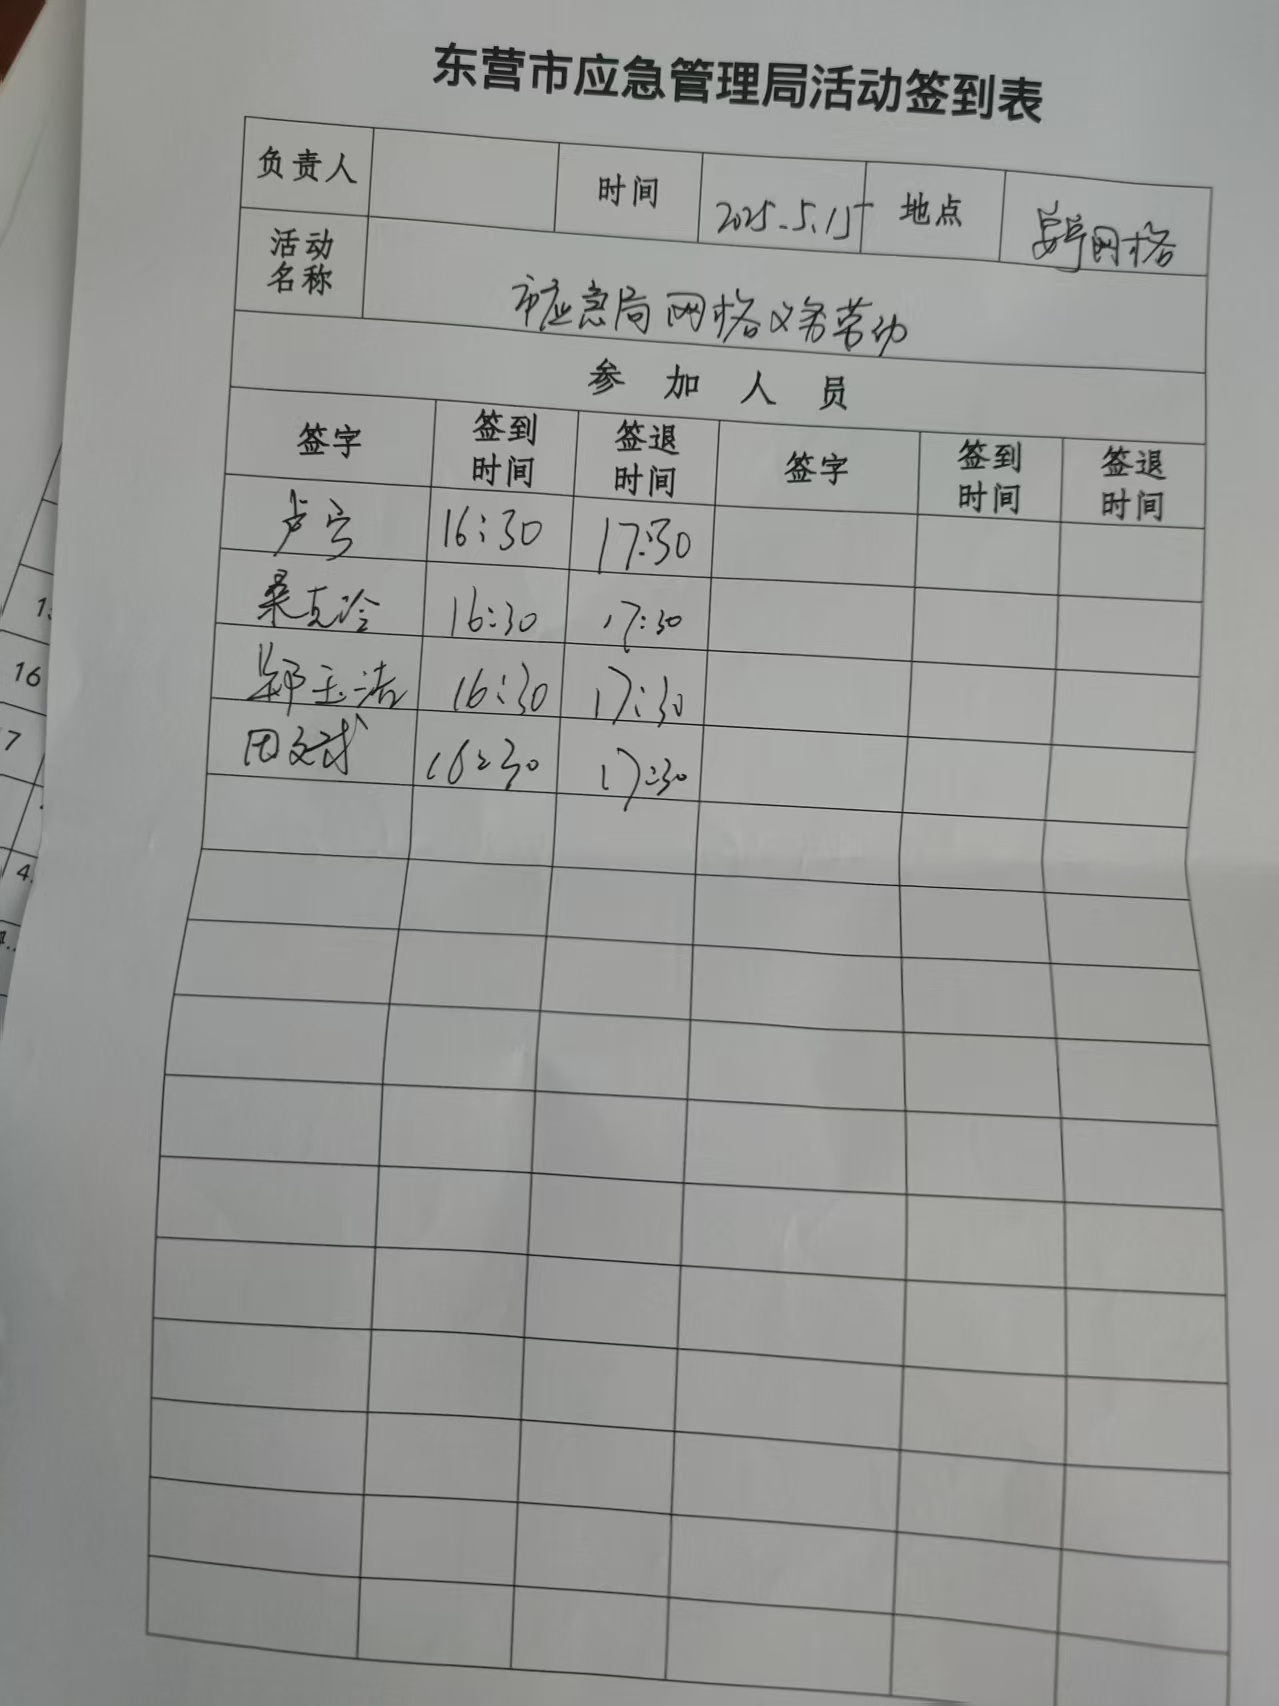 东营市应急管理局活动签到表
负责人 时间 2025.5.15 地点 网格
活动名称 市应急局网格义务劳动
参加人员
签字 签到时间 签退时间 签字 签到时间 签退时间
卢宁 16:30 17:30
桑克冷 16:30 17:30
郑玉洁 16:30 17:30
田文斌 16:30 17:30
16
7
4.